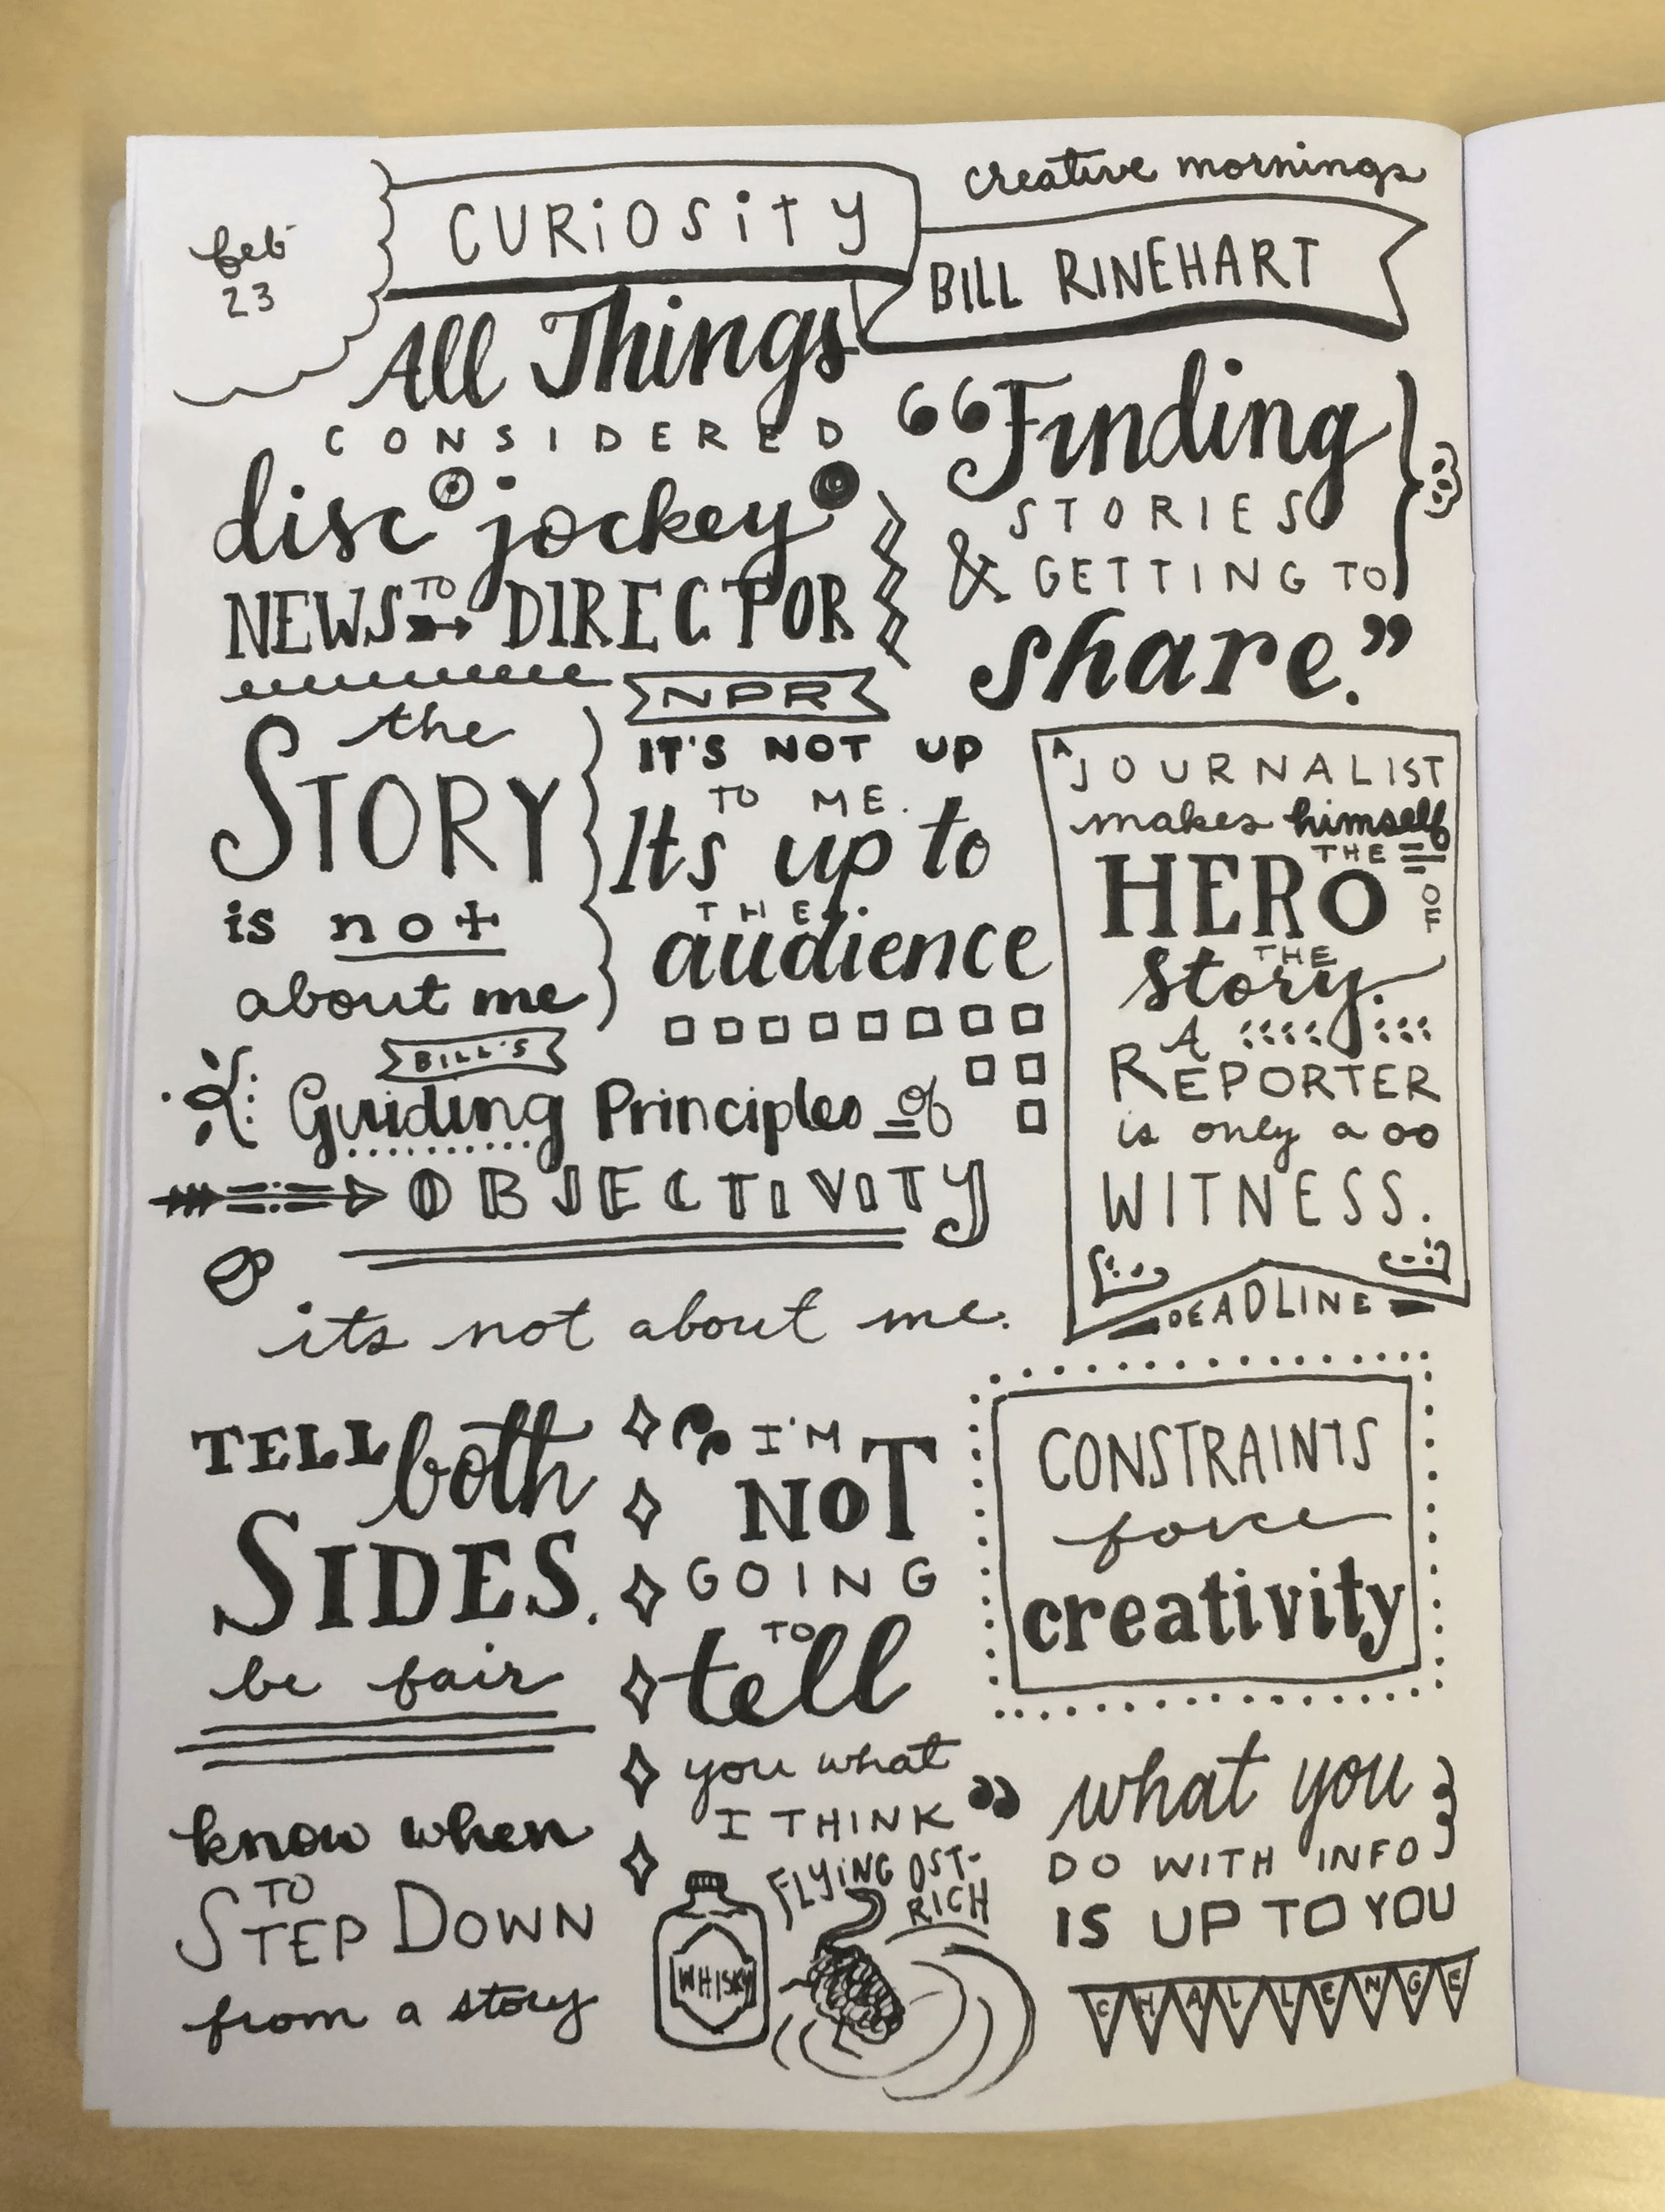 feb
23
CURiOSiTY
creative mornings
BILL RINEHART
All Things
CONSIDERED
disc jockey
NEWS TO DIRECTOR
NPR
"Finding
STORIES
& GETTING TO
share."
the
STORY
is not
about me
IT'S NOT UP
TO ME.
It's up to
THE
audience
A JOURNALIST
makes himself
THE
HERO OF
THE
story.
A
REPORTER
is only a
WITNESS.
DEADLINE
BILL'S
Guiding Principles of
OBJECTIVITY
its not about me.
TELL both
SIDES.
be fair
know when
TO
STEP DOWN
from a story
"I'M
NOT
GOING
TO
tell
you what
I THINK"
WHISKY
FLYiNG OST-
RICH
CONSTRAINTS
force
creativity
what you
DO WITH INFO
IS UP TO YOU
CHALLENGE